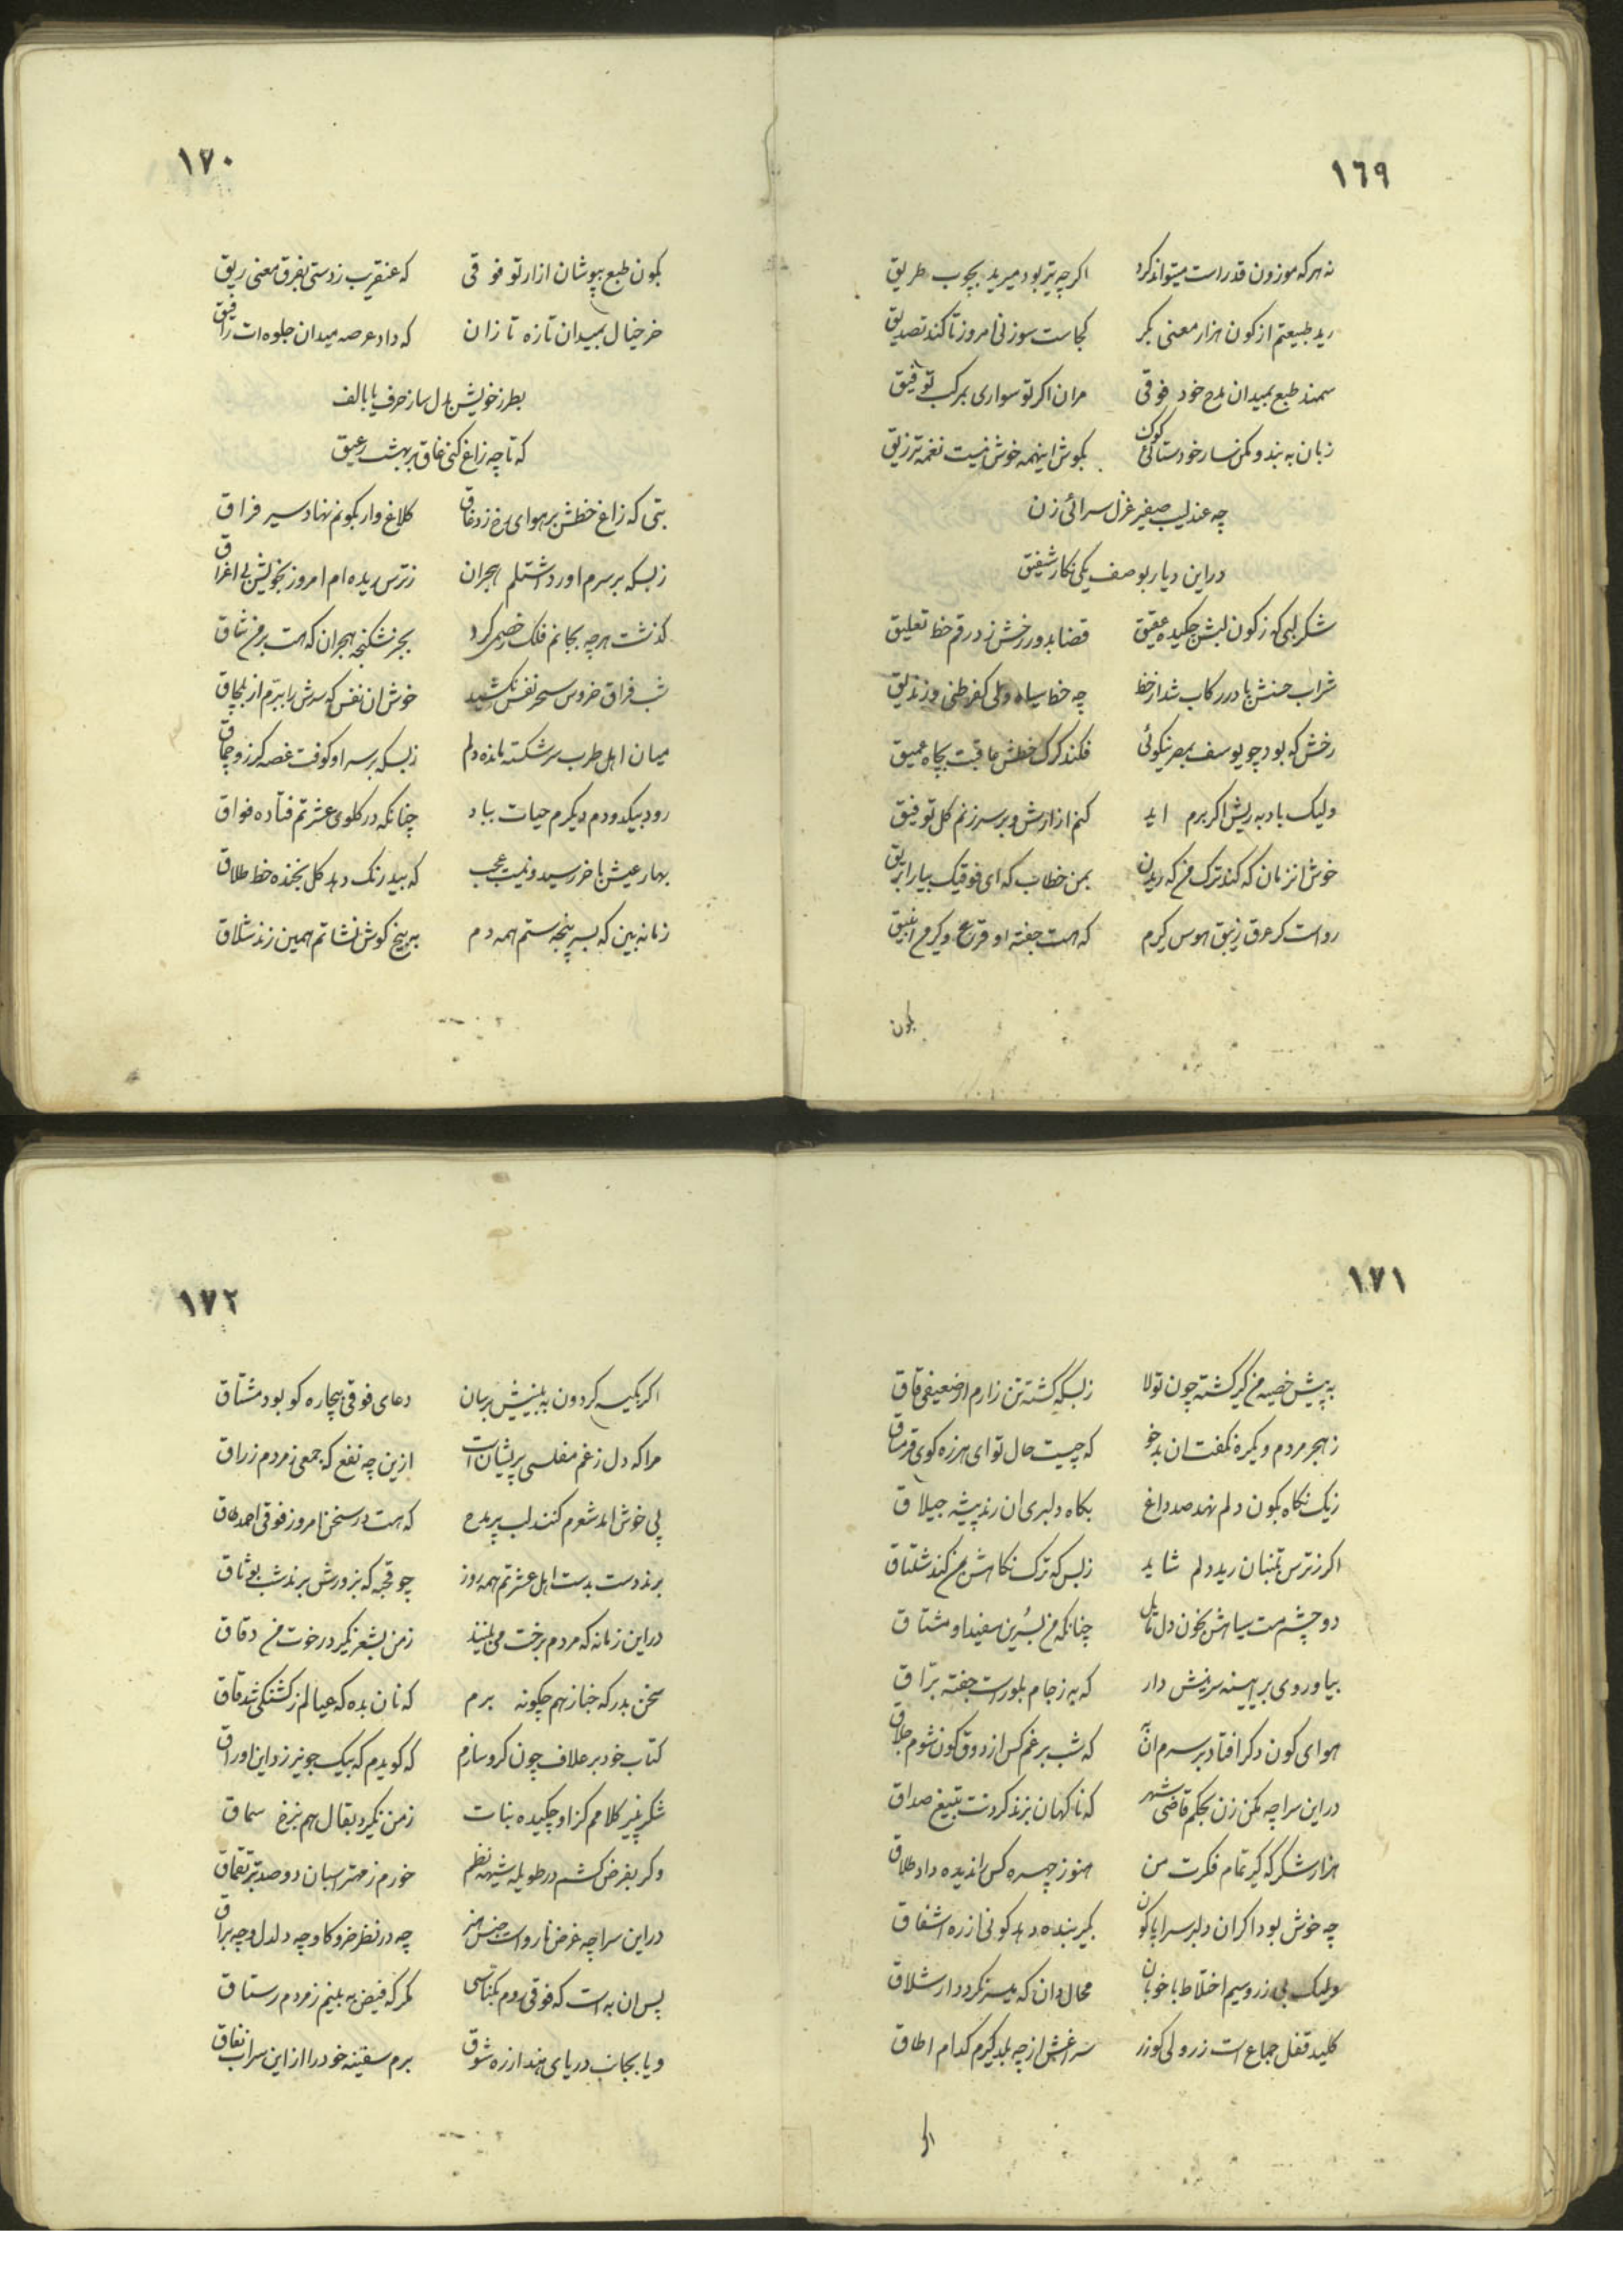 ١٦٩
نه هر که موزون قد راست میتواند کرد اکر چه تیر بود میرید بچوب طریق
رید طبیعتم از کون هزار معنی بکر کجاست سوزنی امروز تا کند تصدیق
سمند طبع بمیدان مدح خود فوقی مران اکر تو سواری بمرکب توفیق
زبان به بند و مکن ساز خودستائی کوک بکوش اینهمه خوش نیست نغمه تزریق
چه عندلیب صفیر غزل سرائی زن
دراین دیار بوصف یکی نکار شفیق
شکر لبی که ز کون لبش چکیده عقیق قضا بدور رخش زد رقم خط تعلیق
شراب حسنش پا در رکاب شد از خط چه خط سیاه ولی کفر ظنی و زندیق
رخش که بود چو یوسف بمصر نیکوئی فکند کرک خطش عاقبت بچاه عمیق
ولیک باد به ریش اکر برم اید کنم ازارش و بر سر زنم کل توفیق
خوش انزمان که کند ترک من که ریدن بمن خطاب که ای فوقیک بیار ابریق
رواست کر عرق زنبق هوس کیرم که هست جفته او قرع و کیر من انبیق
بکون
١٧٠
بکون طبع بپوشان ازار تو فوقی که عنقریب زدستی بفرق معنی ریق
خر خیال بمیدان تازه تازان که داد عرصه میدان جلوه ات را فیق
بطرز خویش بدل ساز حرف یا بالف
که تا چه زاغ کنی غاق بر بهشت رعیق
بتی که زاغ خطش بر هوای رخ زد غاق کلاغ وار بکونم نهاد سیر فراق
زبسکه بر سرم اورد اشتلم هجران زترس ریده ام امروز بخویش بی اغراق
کذشت هرچه بجانم فلک خصیمی کرد بجز شکنجه هجران که هست بر من شاق
شب فراق خروس سحر نفس نکشید خوش ان نفس که سرش را ببرم از بلحاق
میان اهل طرب سر شکسته مانده دلم زبسکه بر سر او کوفت غصه کرز و چماق
رود بیکدو دم دیکرم حیات بباد چنانکه در کلوی عشرتم فتاده فواق
بهار عیش باخر رسید و نیست عجب که بید رنک دهد کل بخنده خط طلاق
زمانه بین که بسر پنجه ستم همه دم ببیخ کوش نشاتم همین زند شلاق
١٧١
به پیش خصیه من کیر کشته چون تولا زبسکه کشته تن زارم از ضعیفی قاق
زهجر مردم و یکره نکفت ان بدخو که چیست حال تو ای هرزه کوی قرمساق
زیک نکاه بکون دلم نهد صد داغ بکاه دلبری ان رند پیشه جیلاق
اکر زترس بتنبان رید دلم شاید زبس که ترک نکاهش بمن کند شلتاق
دو چشم مست سیاهش بخون دل مایل چنانکه من بسرین سفید او مشتاق
بیا و روی بر ایینه سرینش دار که به زجام بلور است جفته براق
هوای کون دکر افتاد بر سرم ان که شب برغم کس از ذوق کون شوم جلاق
دراین سراچه مکن زن بحکم قاضی شهر که ناکهان بزند کردنت بتیغ صداق
هزار شکر که کیر تمام فکرت من هنوز چهره کس را ندیده داد طلاق
چه خوش بود اکر ان دلبر سراپا کون بکیر بنده دهد کونی از ره اشفاق
ولیک بی زر و سیم اختلاط با خوبان محال دان که میسر نکردد ار شلاق
کلید قفل جماع است زر ولی کو زر سراغش از چه بلد کیرم کدام اطاق
اکر
١٧٢
اکر بکیسه کردون به بینیش برسان دعای فوقی بیچاره کو بود مشتاق
مرا که دل زغم مفلسی پریشان است ازین چه نفع که جمعی زمردم زراق
پی خوش امد شعرم کنند لب پر مدح که هست در سخن امروز فوقی احمد طاق
برند دست بدست اهل عشرتم همه روز چو قحبه که بزورش برند شب بوثاق
دراین زمانه که مردم برخت می بینند زمن بشعر نکیرد رخوت من دقاق
سخن بدرکه خباز هم چکونه برم که نان بده که عیالم زکشنکی شد قاق
کتاب خود بر علاف چون کرو سازم که کویدم که بیک جو نیرزد این اوراق
شکر پنیر کلامم کز او چکیده نبات زمن نکیرد بقال هم بنرخ سماق
وکر بفرض کشم در طویله شیهه نظم خورم زمهتر اسبان دوصد تبر تخماق
دراین سراچه غرض نارواست جنس هنر چه در نظر خر و کاو چه دلدل و چه براق
پس ان به است که فوقی روم بکناسی مکر که فیض به بینم زمردم رستاق
و یا بجانب دریای هند از ره شوق برم سفینه خود را از این سراب نفاق